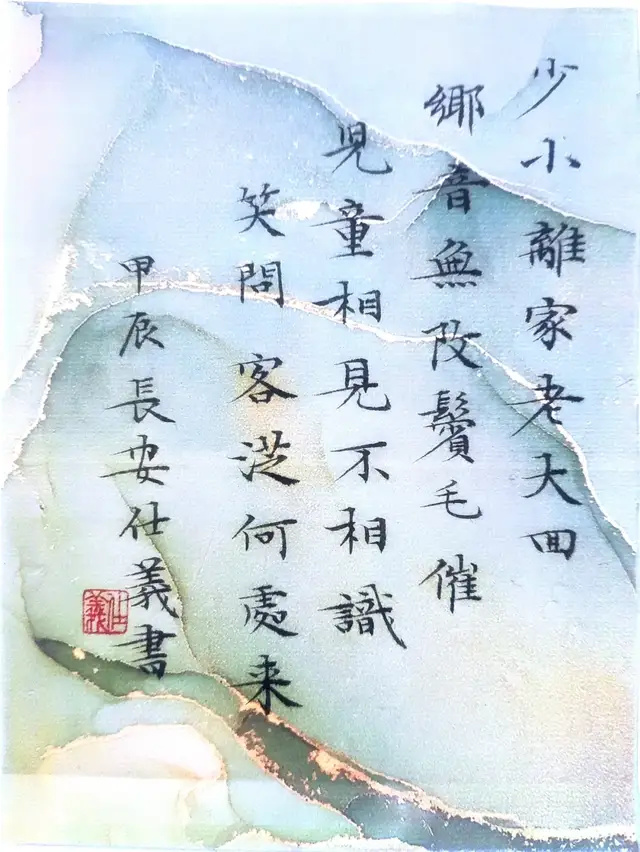 少小離家老大囬
鄉音無改鬢毛催
児童相見不相識
笑問客従何處来
甲辰長安仕義書
仕義